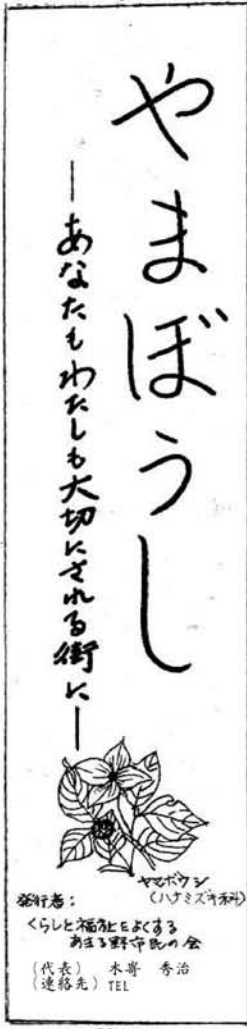 やまぼうし
―あなたもわたしも大切にされる街に―
ヤマボウシ
(ハナミズキ科)
発行者:
くらしと福祉をよくする
あきる野市民の会
(代表) 木嵜 秀治
(連絡先) TEL